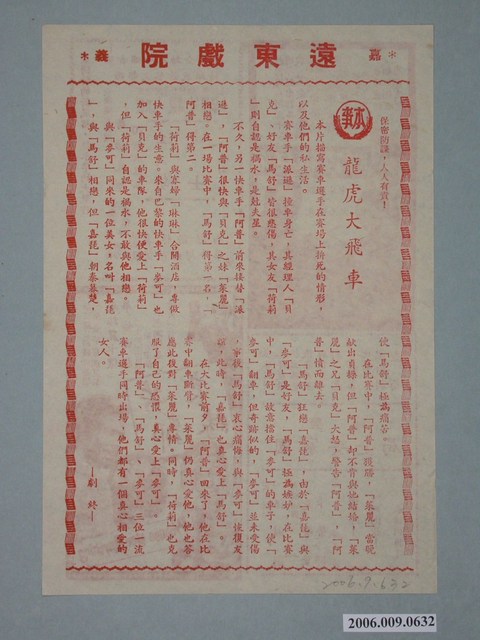 嘉 遠東戲院 義
保密防諜，人人有責！
本事 龍虎大飛車
本片描寫賽車選手在賽場上拚死的情形，
以及他們的私生活。
賽車手「派遜」撞車身亡，其經理人「貝
克」、好友「馬舒」皆很悲傷，其女友「荷莉
」則自認是禍水，是剋夫星。
不久，另一快車手「阿普」前來接替「派
遜」，「阿普」很快與「貝克」之妹「茱麗」
相戀。在一場比賽中，「馬舒」得第一名，「
阿普」得第二。
「荷莉」與寡婦「琳琳」合開酒店，專做
快車手的生意。來自巴黎的快車手「麥可」也
加入「貝克」的車隊，他很快便愛上「荷莉」
，但「荷莉」自認是禍水，不敢與他相戀。
與「麥可」同來的一位美女，名叫「嘉蓓
」，與「馬舒」相戀，但「嘉蓓」朝秦暮楚，
使「馬舒」極為痛苦。
在比賽中，「阿普」獲勝，「茱麗」當晚
獻出貞操，但「阿普」卻不肯與她結婚，「茱
麗」之兄「貝克」大怒，警告「阿普」，「阿
普」憤而離去。
「馬舒」狂戀「嘉蓓」，由於「嘉蓓」與
「麥可」是好友，「馬舒」極為嫉妒，在比賽
中，「馬舒」故意擋住「麥可」的車子，使「
麥可」翻車，但奇跡似的，「麥可」並未受傷
，事後「馬舒」衷心痛悔，與「麥可」恢復友
誼，此時，「嘉蓓」也真心愛上「馬舒」。
在大比賽前夕，「阿普」回來了，他在比
賽中翻車斷臂，「茱麗」仍真心愛他，他也答
應此後對「茱麗」專情。同時，「荷莉」也克
服了自己的恐懼，真心愛上「麥可」。
「阿普」、「馬舒」、「麥可」三位一流
賽車選手同時出場，他們都有一個真心相愛的
女人。
——劇　終——
2006.9.632
2006.009.0632